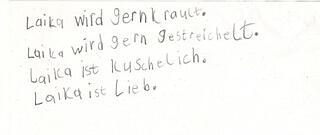 Laika wird gernkrault.
Laika wird gern gestreichelt.
Laika ist Kuschelich.
Laika ist Lieb.